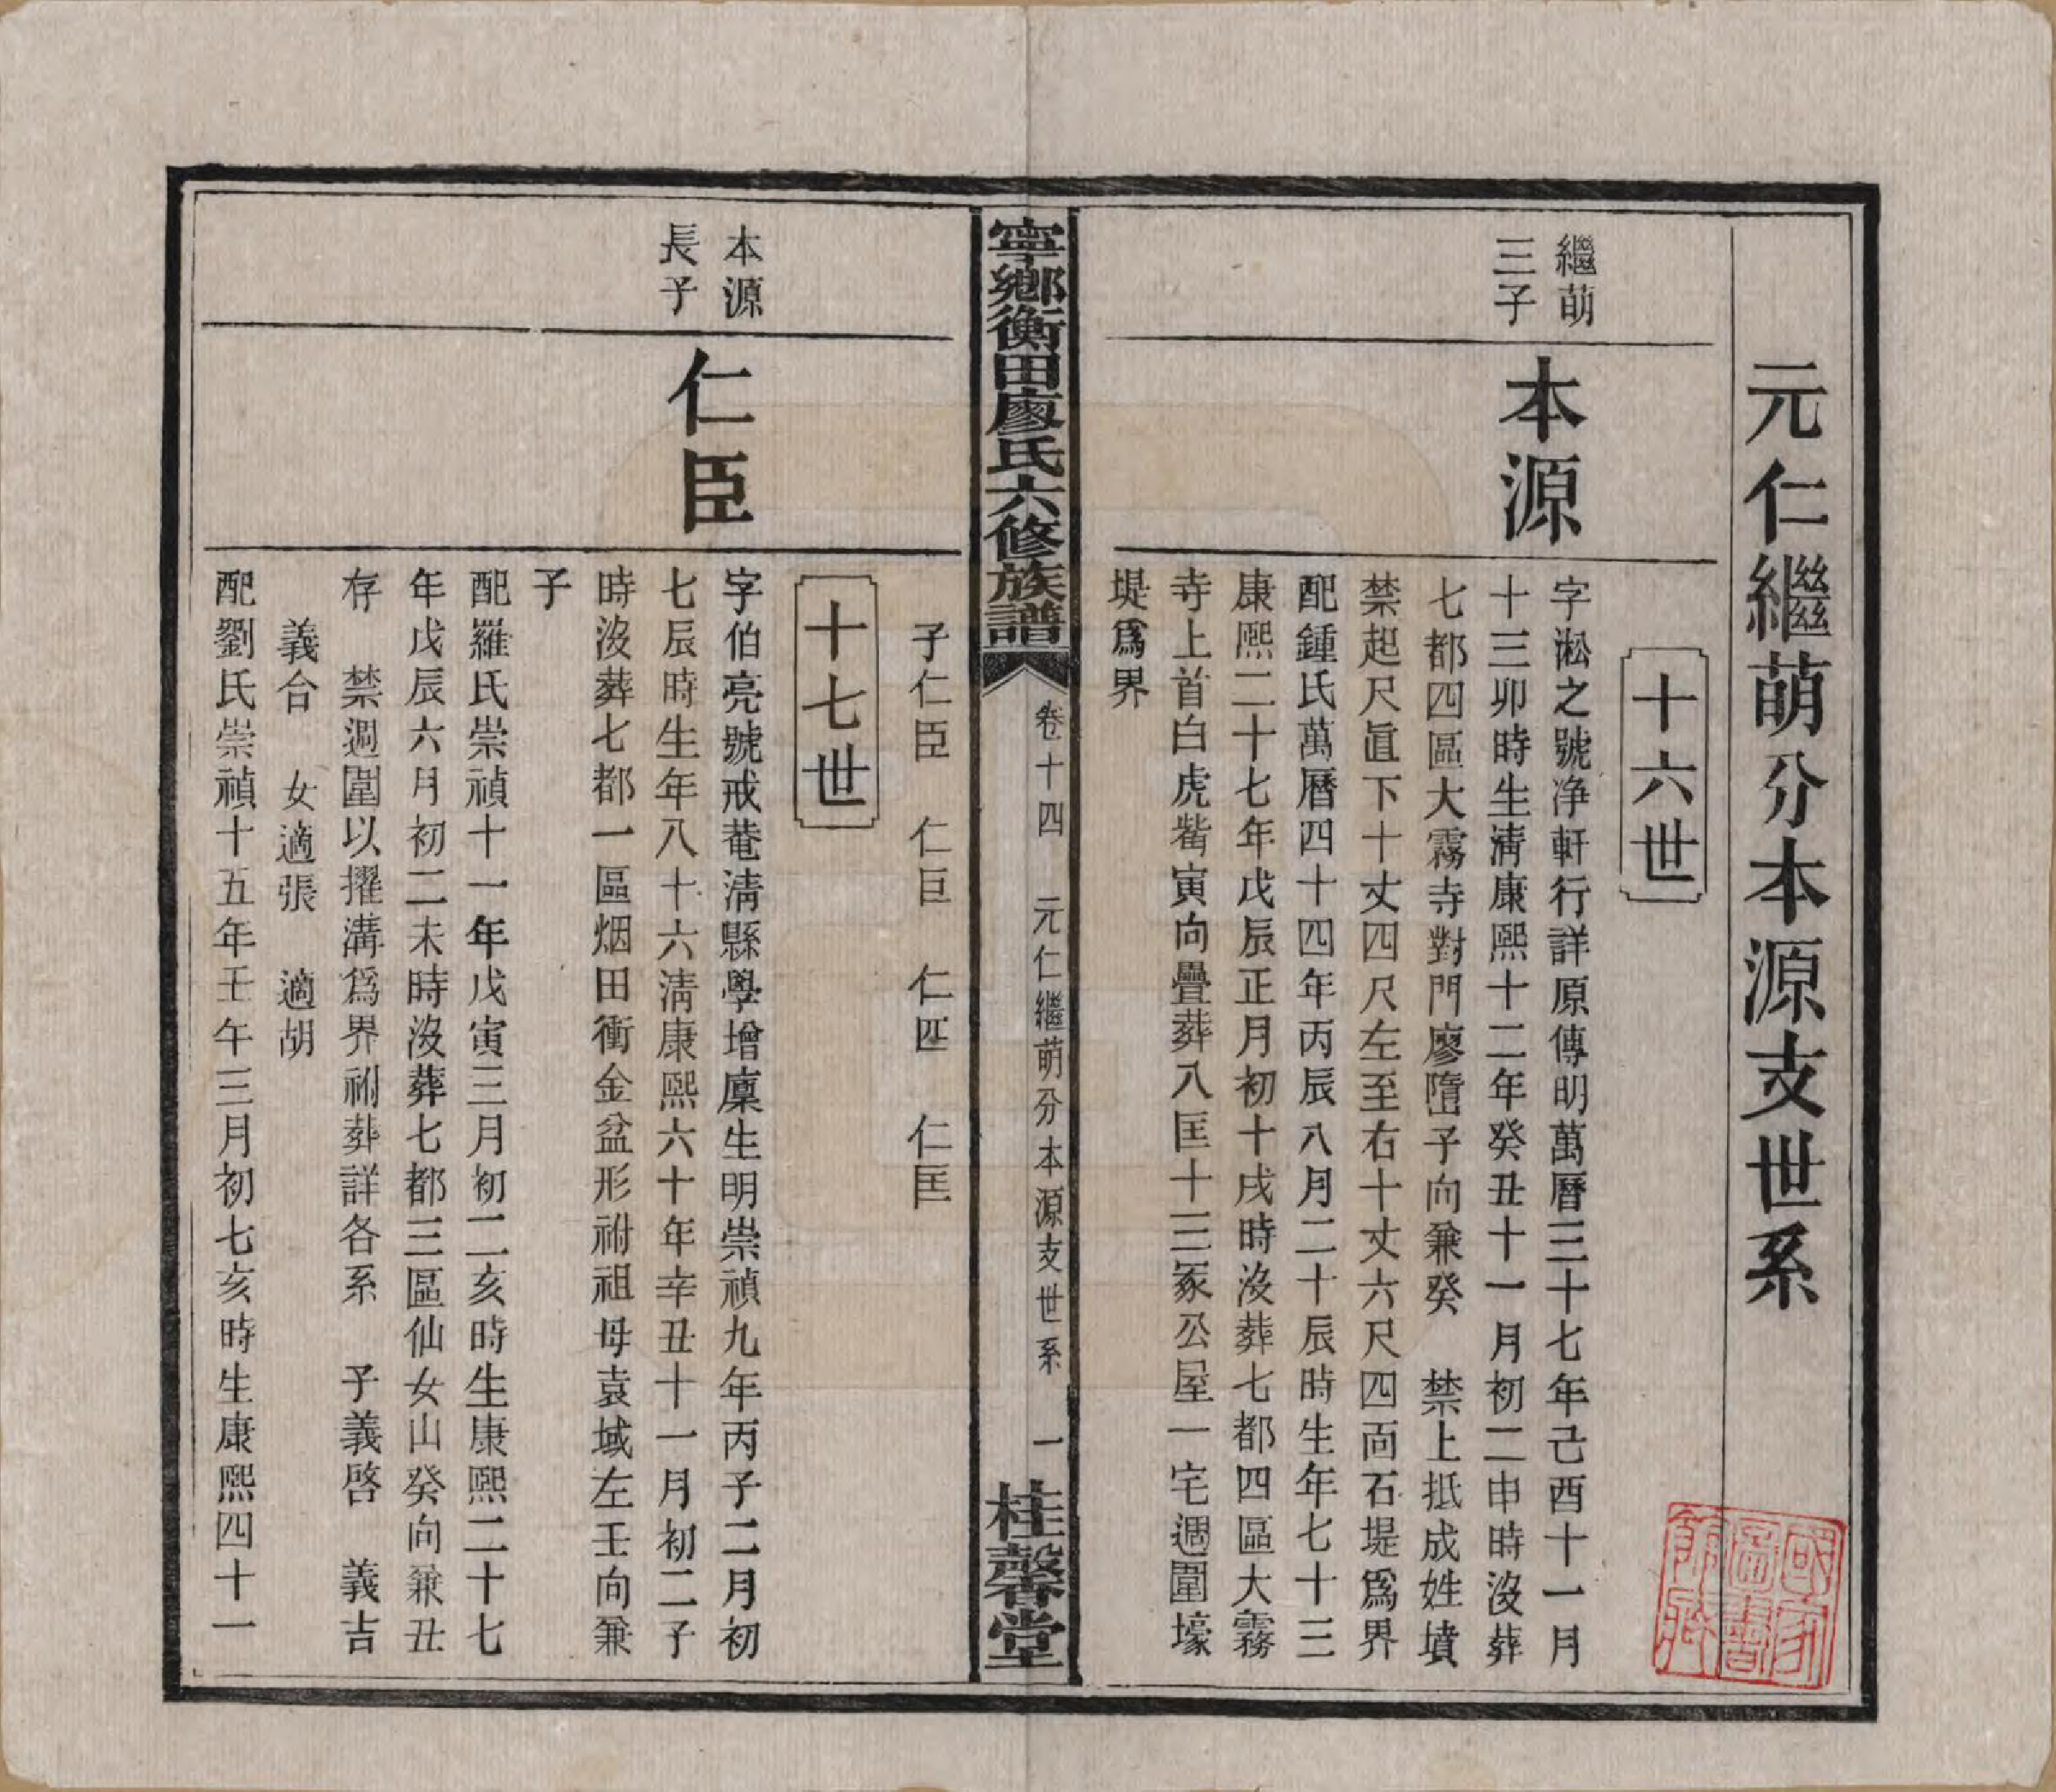 元仁繼萌分本源支世系
十六世
繼萌
三子
本源
字淞之號净軒行詳原傳明萬曆三十七年己酉十一月
十三卯時生淸康熙十二年癸丑十一月初二申時沒葬
七都四區大霧寺對門廖䧢子向兼癸　禁上抵成姓墳
禁起尺直下十丈四尺左至右十丈六尺四面石堤爲界
配鍾氏萬曆四十四年丙辰八月二十辰時生年七十三
康熙二十七年戊辰正月初十戌時沒葬七都四區大霧
寺上首白虎觜寅向疊葬八匡十三冢公屋一宅週圍壕
堤爲界
寧鄉衡田廖氏六修族譜
卷十四　元仁繼萌分本源支世系　一
桂馨堂
子仁臣　仁巨　仁匹　仁匡
十七世
本源
長子
仁臣
字伯亮號戒菴淸縣學增廩生明崇禎九年丙子二月初
七辰時生年八十六淸康熙六十年辛丑十一月初二子
時沒葬七都一區烟田衝金盆形祔祖母袁域左壬向兼
子
配羅氏崇禎十一年戊寅三月初二亥時生康熙二十七
年戊辰六月初二未時沒葬七都三區仙女山癸向兼丑
存　禁週圍以擢溝爲界祔葬詳各系　子義啓　義吉
義合　女適張　適胡
配劉氏崇禎十五年壬午三月初七亥時生康熙四十一
國家
圖書
館藏